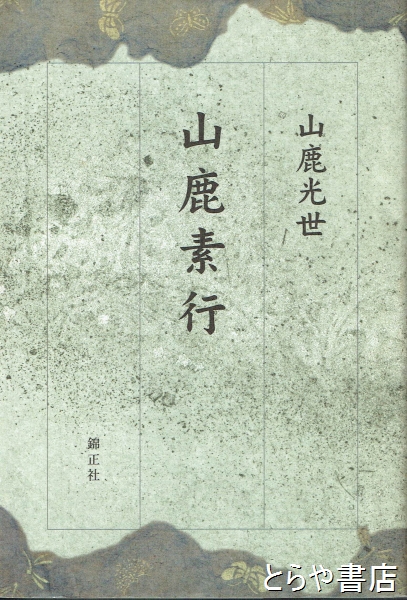 山鹿光世
山鹿素行
錦正社
とらや書店